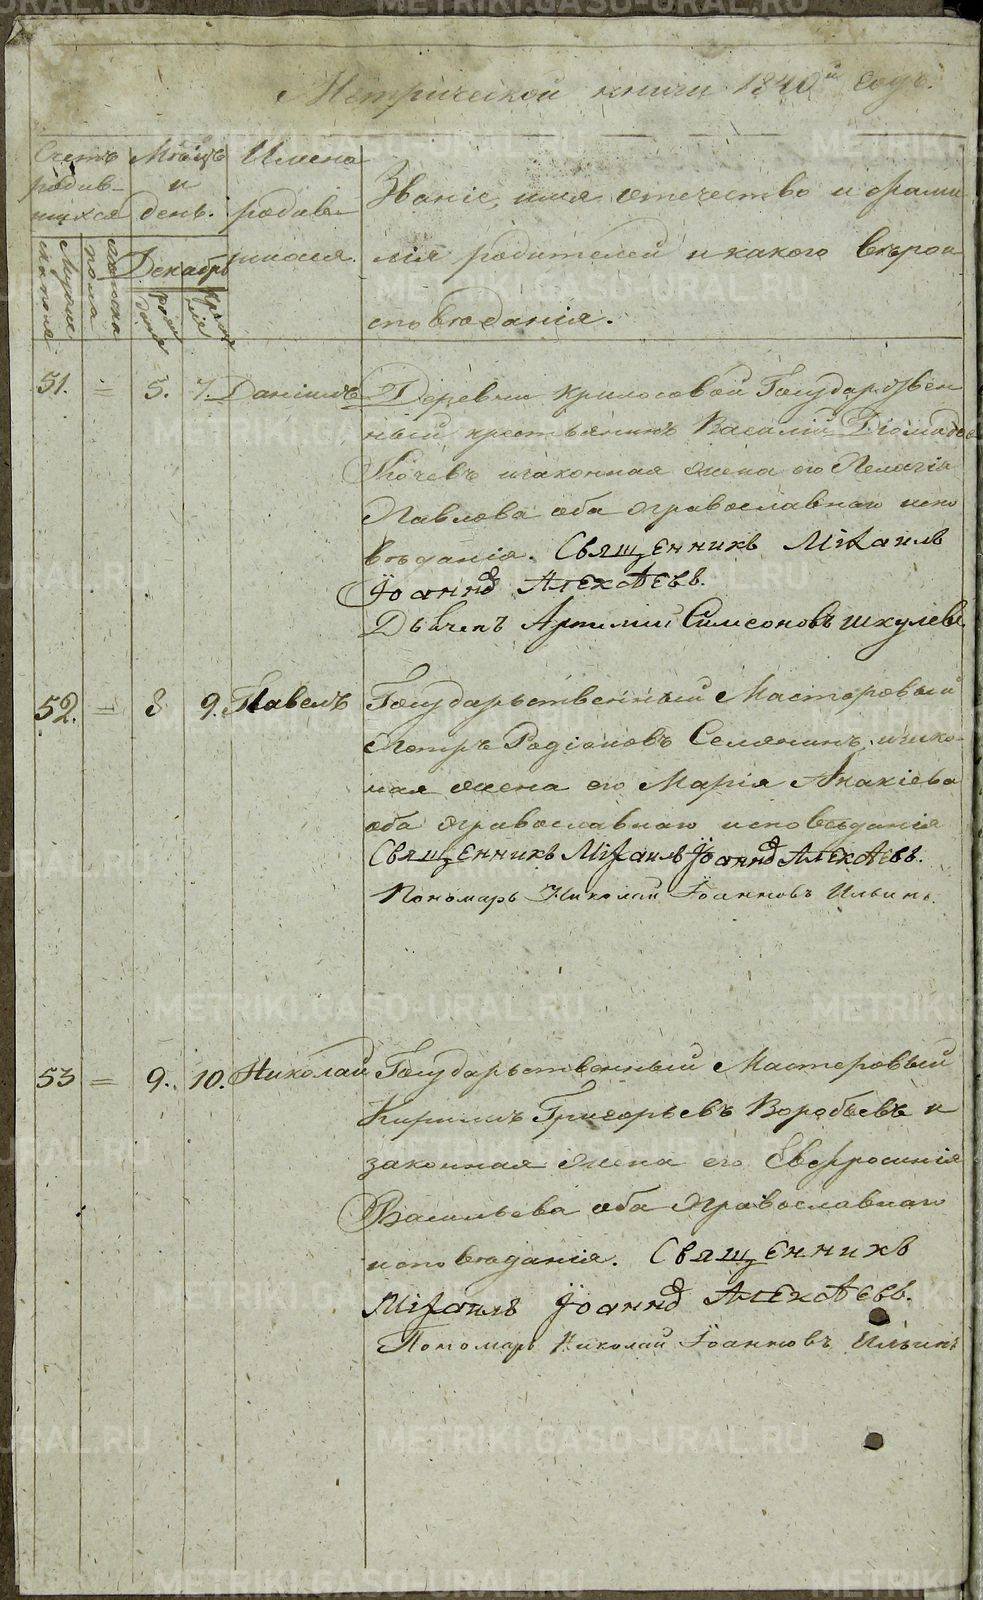 Метрической книги 1840й годъ.
Счетъ родив- шихся
Мѣсяцъ и день.
Имена родив- шихся.
Званіе, имя отечество и фами
лія родителей и какого вѣрои
споведанія.
Мужеска пола
женска пола
Декабрь
рож денія
креще нія
51. = 5. 7. Даніилъ Деревни Крилосовой Государствен
ный крестьянинъ Василій Диомидовъ
и законная жена его Пелагія
Павлова оба православнаго испо
вѣданія. Священникъ Михаилъ
Іоаннъ Алекѣевъ.
Дьячекъ Артемій Симеоновъ Шкулевъ
52. = 8 9. Павелъ Государьственный Мастеровый
Петръ Родіоновъ Селянинъ и зако-
ная жена его Марія Акакіева
оба православнаго исповѣданія
Священникъ Михаилъ Іоаннъ Алекѣевъ.
Пономарь Николай Іоанновъ Ильинъ.
53 = 9. 10. Николай Государьственный Мастеровый
Кирилъ Григорьевъ Воробьевъ и
законная жена его Евфросинія
Васильева оба православнаго
исповѣданія. Священникъ
Михаилъ Іоаннъ Алекѣевъ.
Пономарь Николай Іоанновъ Ильинъ
METRIKI.GASO-URAL.RU